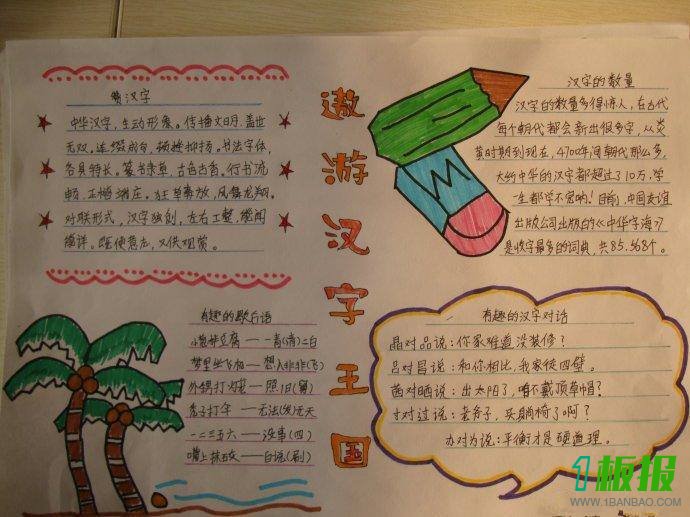 赞汉字
中华汉字，生动形象。传播文明，盖世
无双。连缀成句，顿挫抑扬。书法字体，
各具特长。篆书隶草，古色古香。行书流
畅，正楷端庄。狂草奔放，凤舞龙翔。
对联形式，汉字独创，左右工整，
。既便意志，又供观赏。
遨游汉字王国
汉字的数量
汉字的数量多得惊人，在古代
每个朝代都会新出很多字，从炎
黄时期到现在，4700年间朝代那么多，
大约中华的汉字都超过了10万，学
一生都学不完哟！目前，中国友谊
出版公司出版的《中华字海》
是收字最多的词典，共85.568个。
有趣的歇后语
小葱拌豆腐——青(清)二白
梦里坐飞机——想入非非(飞)
外甥打灯笼——照旧(舅)
秃子打伞——无法(发)无天
一二三五六——没事(四)
嘴上抹石灰——白说(刷)
有趣的汉字对话
晶对品说：你家难道没装修？
吕对昌说：和你相比，我家徒四壁。
茜对晒说：出太阳了，咱不戴顶草帽？
寸对过说：老爷子，买躺椅了啊？
办对为说：平衡才是硬道理。
1板报
WWW.1BANBAO.COM